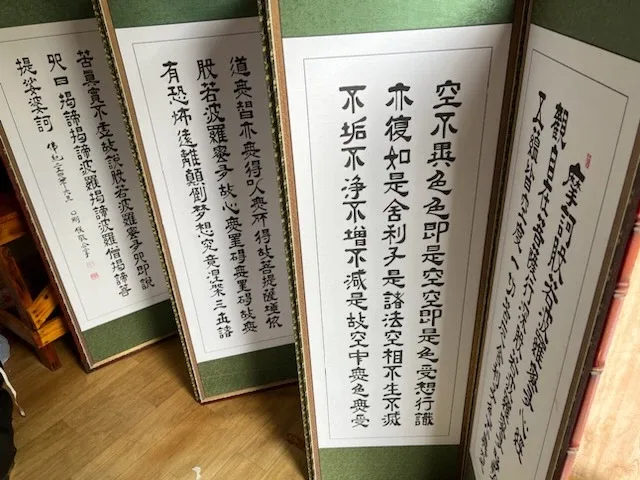 摩訶般若波羅蜜多心經
觀自在菩薩行深般若波羅蜜多時照見
五蘊皆空度一切苦厄舍利子色不異空
空不異色色即是空空即是色受想行識
亦復如是舍利子是諸法空相不生不滅
不垢不净不增不減是故空中無色無受
道無智亦無得以無所得故菩提薩埵依
般若波羅蜜多故心無罣碍無罣碍故無
有恐怖遠離顛倒夢想究竟涅槃三世諸
苦真實不虛故說般若波羅蜜多呪即說
呪曰揭諦揭諦波羅揭諦波羅僧揭諦菩
提娑婆訶
佛紀二五